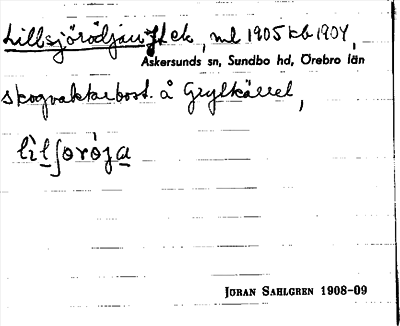 Lillsjörödjan ek, ml 1905 kb 1904,
Askersunds sn, Sundbo hd, Örebro län
skogvaktarbost. å Grylkärret,
lìlʃorö́ja
JÖRAN SAHLGREN 1908-09